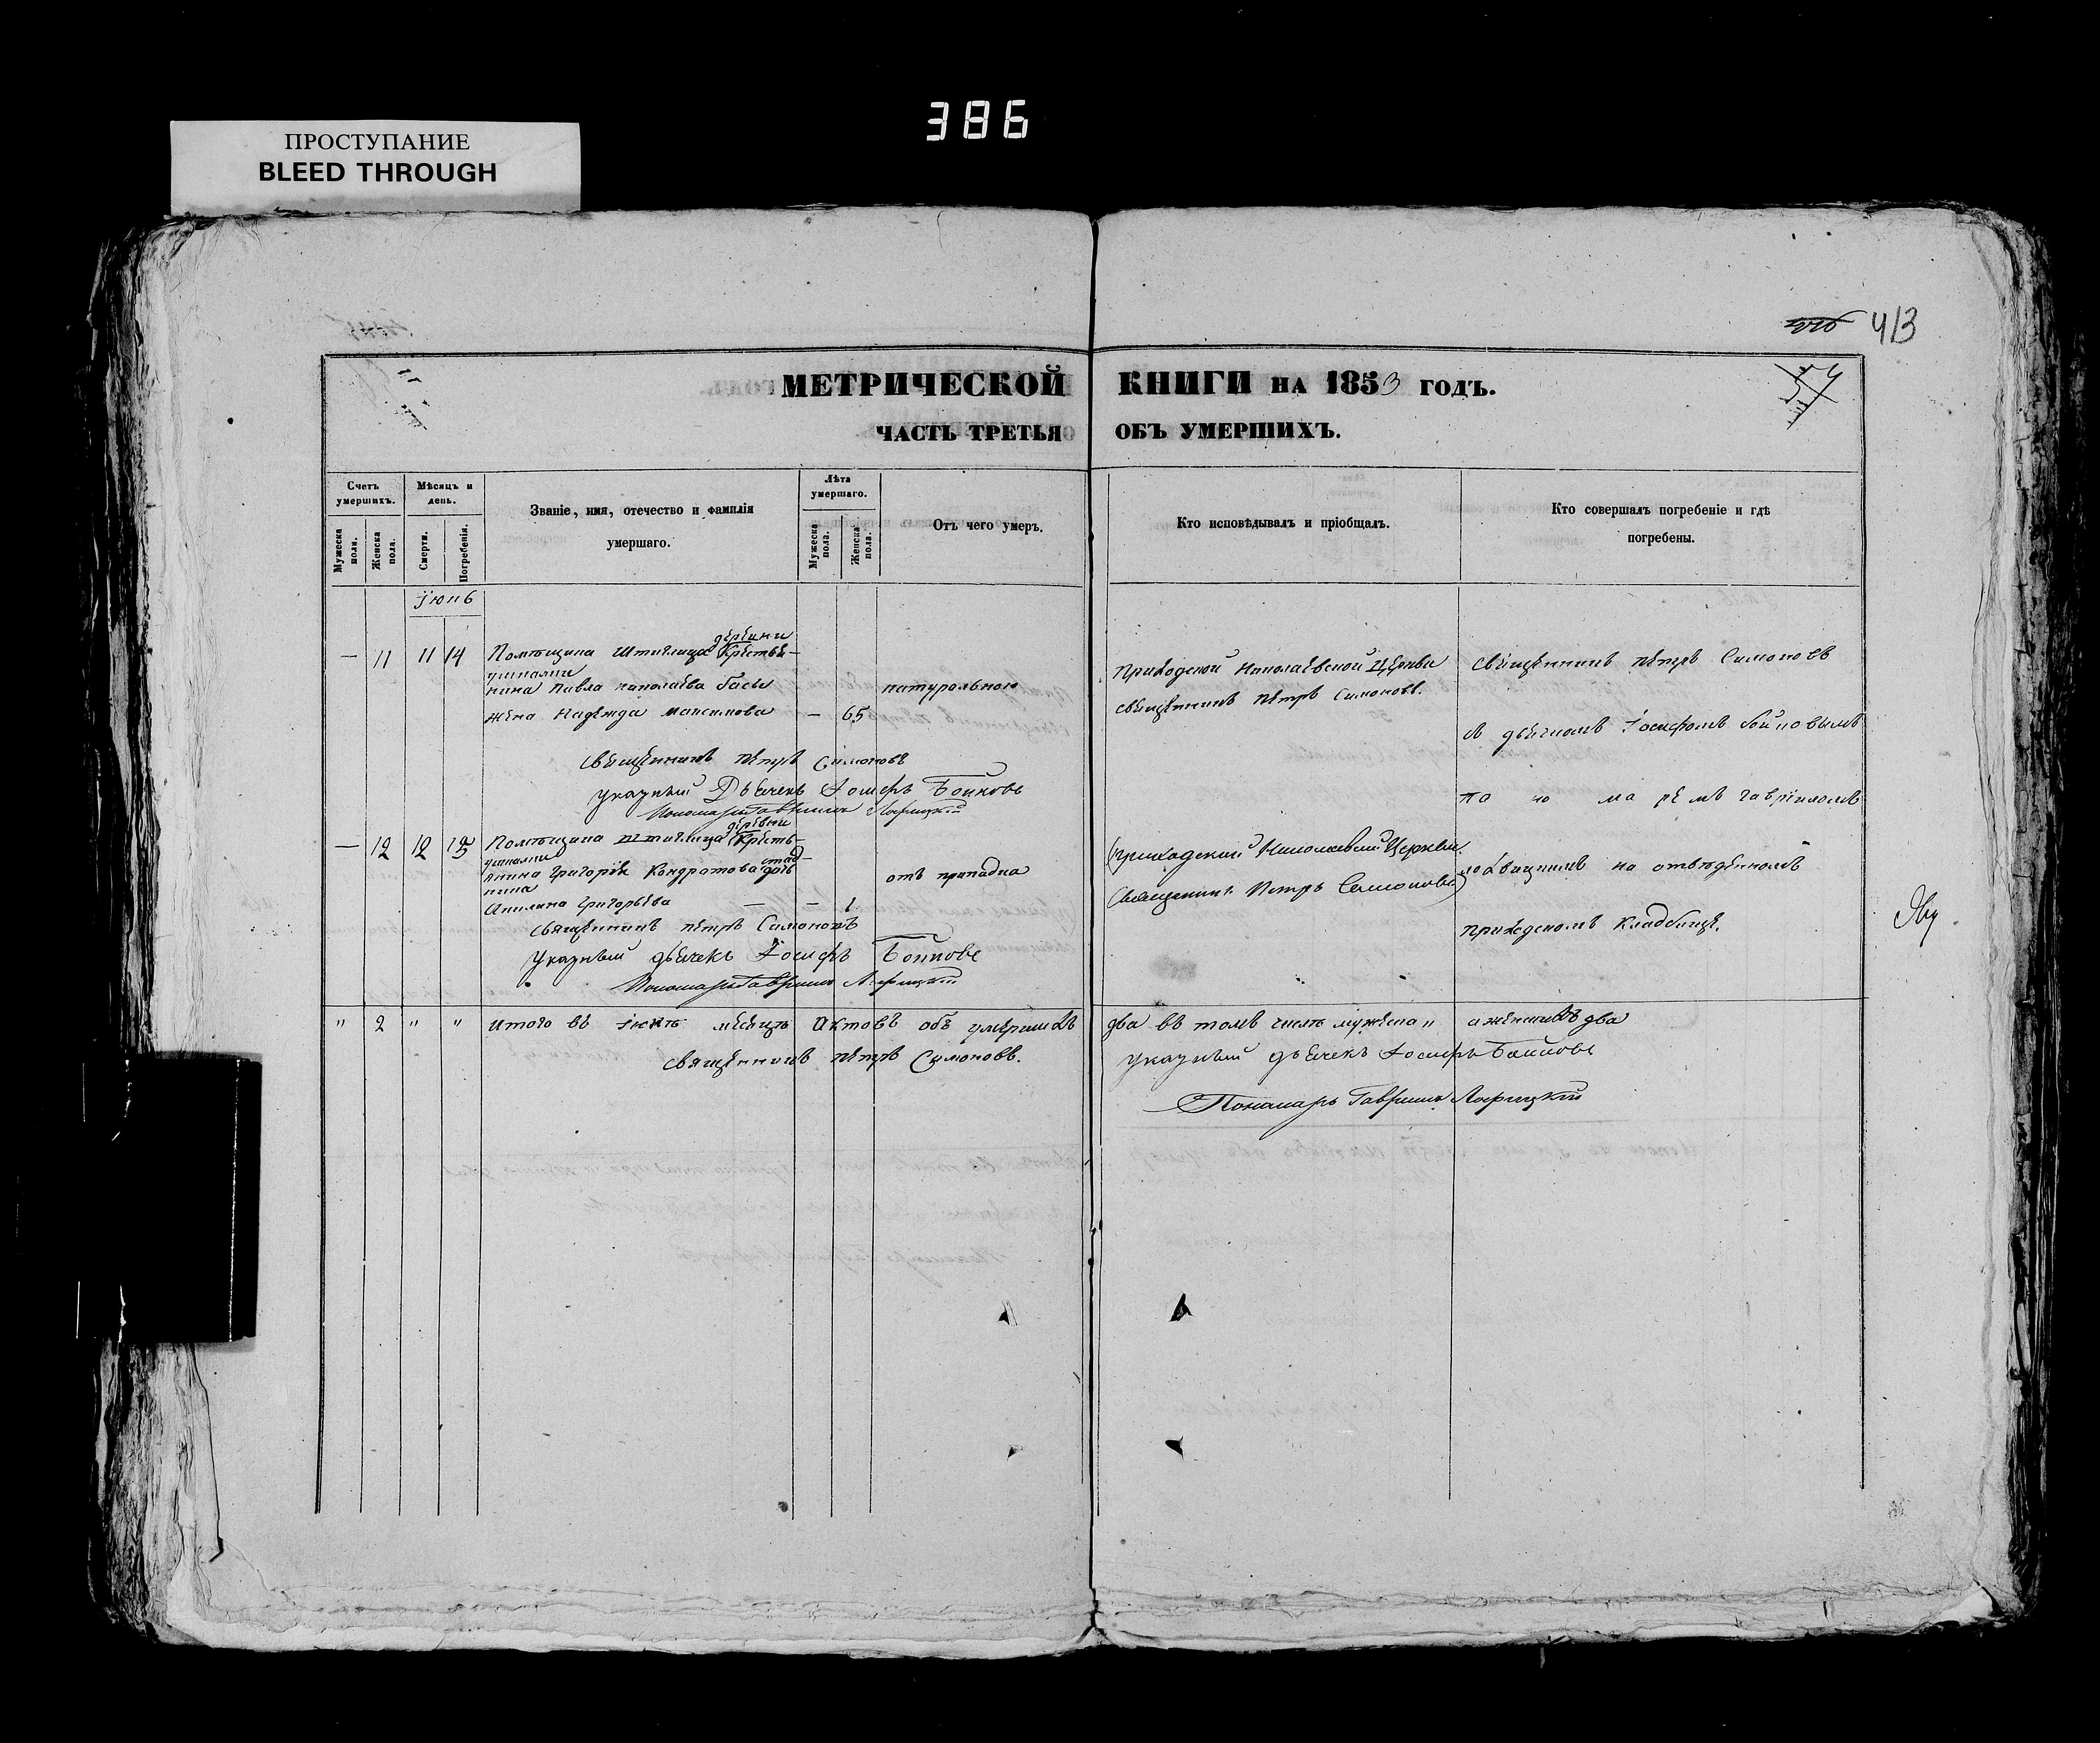 386
ПРОСТУПАНИЕ
BLEED THROUGH
413
МЕТРИЧЕСКОЙ КНИГИ НА 1853 ГОДЪ.
ЧАСТЬ ТРЕТЬЯ ОБЪ УМЕРШИХЪ.
Счетъ умершихъ.
Мужеска пола.
Женска пола.
Мѣсяцъ и день.
Смерти.
Погребенія.
Званіе, имя, отечество и фамилія умершаго.
Лѣта умершаго.
Мужеска пола.
Женска пола.
Отъ чего умеръ.
Кто исповѣдывалъ и пріобщалъ.
Кто совершалъ погребеніе и гдѣ погребены.
Іюнь
— 11 11 14 Помѣщика Штиглица деревни Крестья-
нина Павла николаева
жена Надежда максимова — 65
натурально
Приходской Николаевской Церкви
священникъ петръ Симоновъ.
священникъ петръ Симоновъ
съ дьячкомъ Іосифомъ бойковымъ
по но ма ремъ гавріиломъ
на отведенномъ
приходскомъ кладбище.
священникъ петръ Симоновъ
указный Дьячекъ Іосифъ Бойковъ
Пономарь Гавріилъ
— 12 12 15 Помѣщика штиглица деревни Кресть-
янина Григорія Кондратова дочь
Акилина Григорьева — — 1
отъ припадка
приходской Николаевской Церкви
Священникъ Петръ Симоновъ
священникъ петръ Симоновъ
Указный дьячекъ Іосифъ Бойковъ
Пономарь Гавріилъ
" 2 " " Итого въ Іюнѣ месяцѣ Актовъ объ умершихъ два въ томъ числѣ мужеска " а женскихъ два
священникъ петръ Симоновъ.
указный дьячекъ Іосифъ Бойковъ
Пономарь Гавріилъ